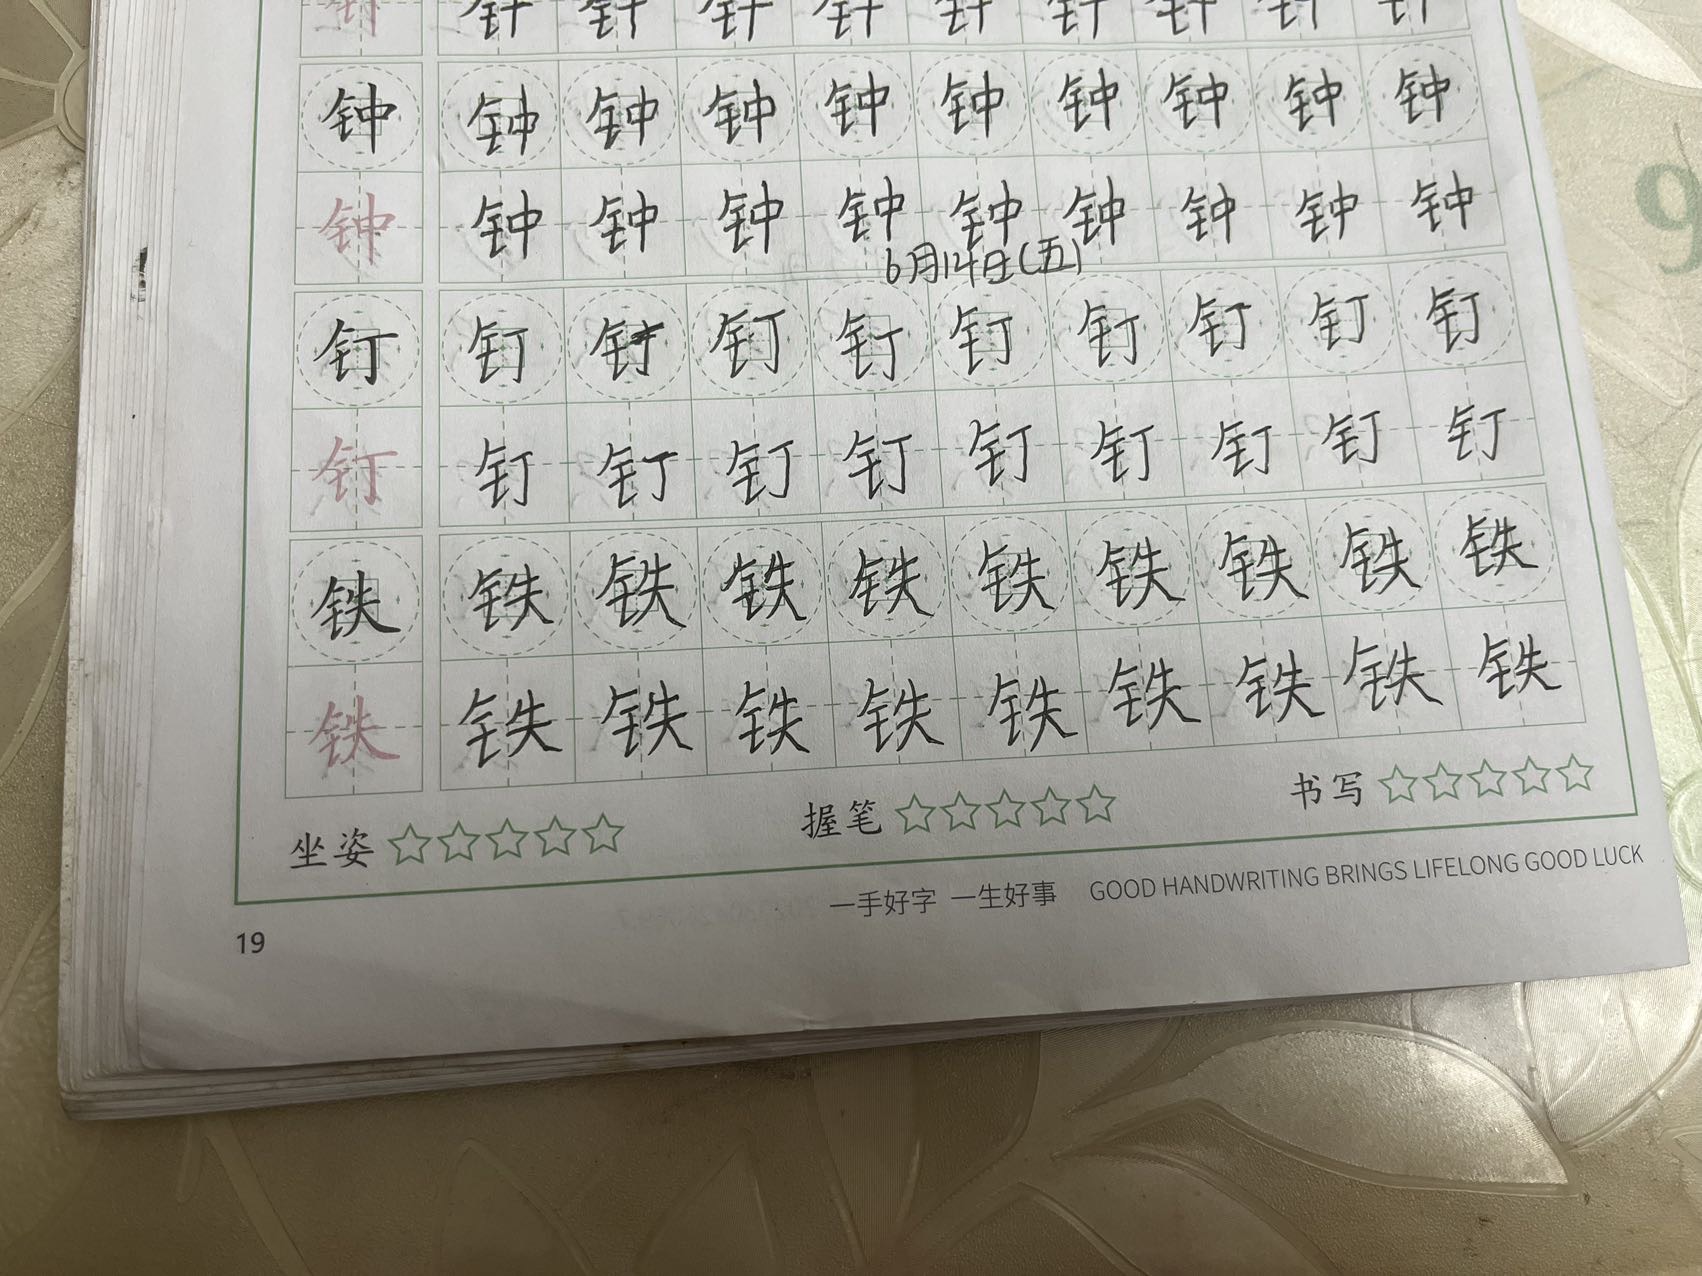 针 针 针 针 针 针 针 针 针 针
钟 钟 钟 钟 钟 钟 钟 钟 钟 钟
钟 钟 钟 钟 钟 钟 钟 钟 钟 钟
6月14日(五)
钉 钉 钉 钉 钉 钉 钉 钉 钉 钉
钉 钉 钉 钉 钉 钉 钉 钉 钉 钉
铁 铁 铁 铁 铁 铁 铁 铁 铁 铁
铁 铁 铁 铁 铁 铁 铁 铁 铁 铁
坐姿 握笔 书写
一手好字 一生好事 GOOD HANDWRITING BRINGS LIFELONG GOOD LUCK
19
9